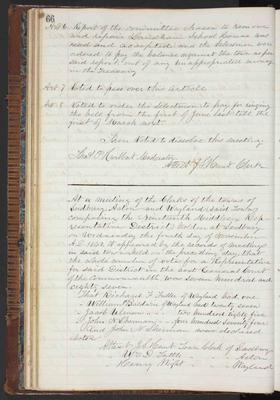 66
Art 6. Report of the committee chosen to remove
and repair District School house was
read and accepted and the Selectmen were
ordered to pay the balance against the town as per
said report, out of any unappropriated money
in the treasury
Art 7 Voted to pass over this article
Art 8 Voted to order the Selectmen to pay for ringing
the bell from the first of June last till the
first of March next.
Then Voted to dissolve this meeting.
Moderator
Attest J. S. Hunt Clerk
At a meeting of the Clerks of the towns of
Sudbury, Acton and Wayland, said towns
composing the Nineteenth Middlesex Rep-
resentative District, holden at Sudbury,
on Wednesday the tenth day of November
A.D. 1858. It appeared by the records of meetings
in said towns held on the preceding day, that
the whole number of votes for a Representative
for said District in the next General Court
of the Commonwealth were Seven hundred and
eighty seven.
That Richard F. Fuller of Wayland had one
William Baldwin Wayland had twenty seven
Jacob two hundred eighty five
John N. Sherman four hundred seventy four
And John N. Sherman was declared
elected
Attest J. S. Hunt Town Clerk of Sudbury
Wm D. Tuttle " " Acton
Henry Wight " " Wayland